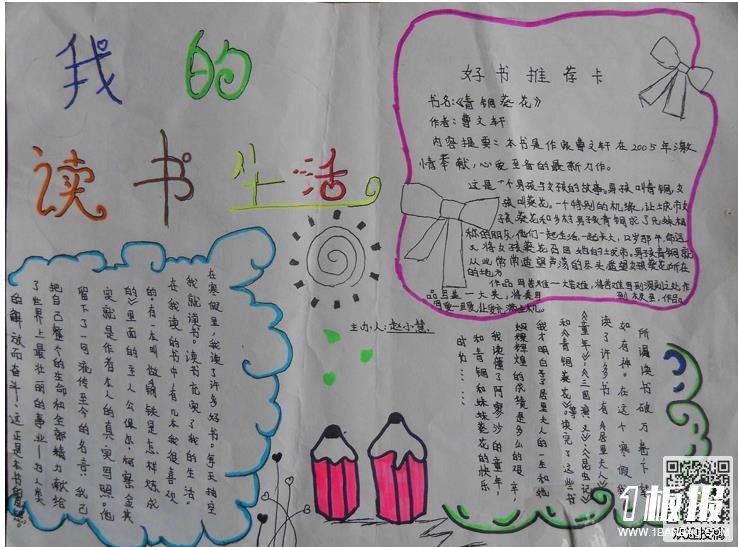 我的
读书生活
好书推荐卡
书名:《青铜葵花》
作者:曹文轩
内容提要:本书是作家曹文轩在2005年激
情奉献,心爱至音的最新力作。
这是一个男孩与女孩的故事。男孩叫青铜,女
孩叫葵花。一个特别的机缘,让城市女
孩葵花和乡村男孩青铜成了兄妹相
称的朋友,他们一起生活、一起长大,12岁那年,命运
又将女孩葵花召回她的城市。男孩青铜就
从此常常遥望芦荡的尽头,遥望女孩葵花所在
的地方
主办人:赵小慧
在寒假里,我读了许多好书。每天抽空
我就读书。读书充实了我的生活。
在我读的书中有几本我很喜欢
的。有一本叫做《钢铁是怎样炼成
的》里面的主人公保尔·柯察金其
实就是作者本人的真实写照。他
留下了一句流传至今的名言:我已
把自己整个的生命和全部精力献给
了世界上最壮丽的事业—为人类
的解放而奋斗!这正是本书的
所谓读书破万卷下
如有神。在这个寒假我
读了许多书有《居里夫人》
《童年》《三国演义》《昆虫记》
和《青铜葵花》等。读完了这些书
我才明白了居里夫人的一生和她
辉煌的成绩是多么的艰辛,
我读懂了阿廖沙的童年,
和青铜和妹妹葵花的快乐
成为……
1板报
WWW.1BANBAO.COM
欢迎投稿